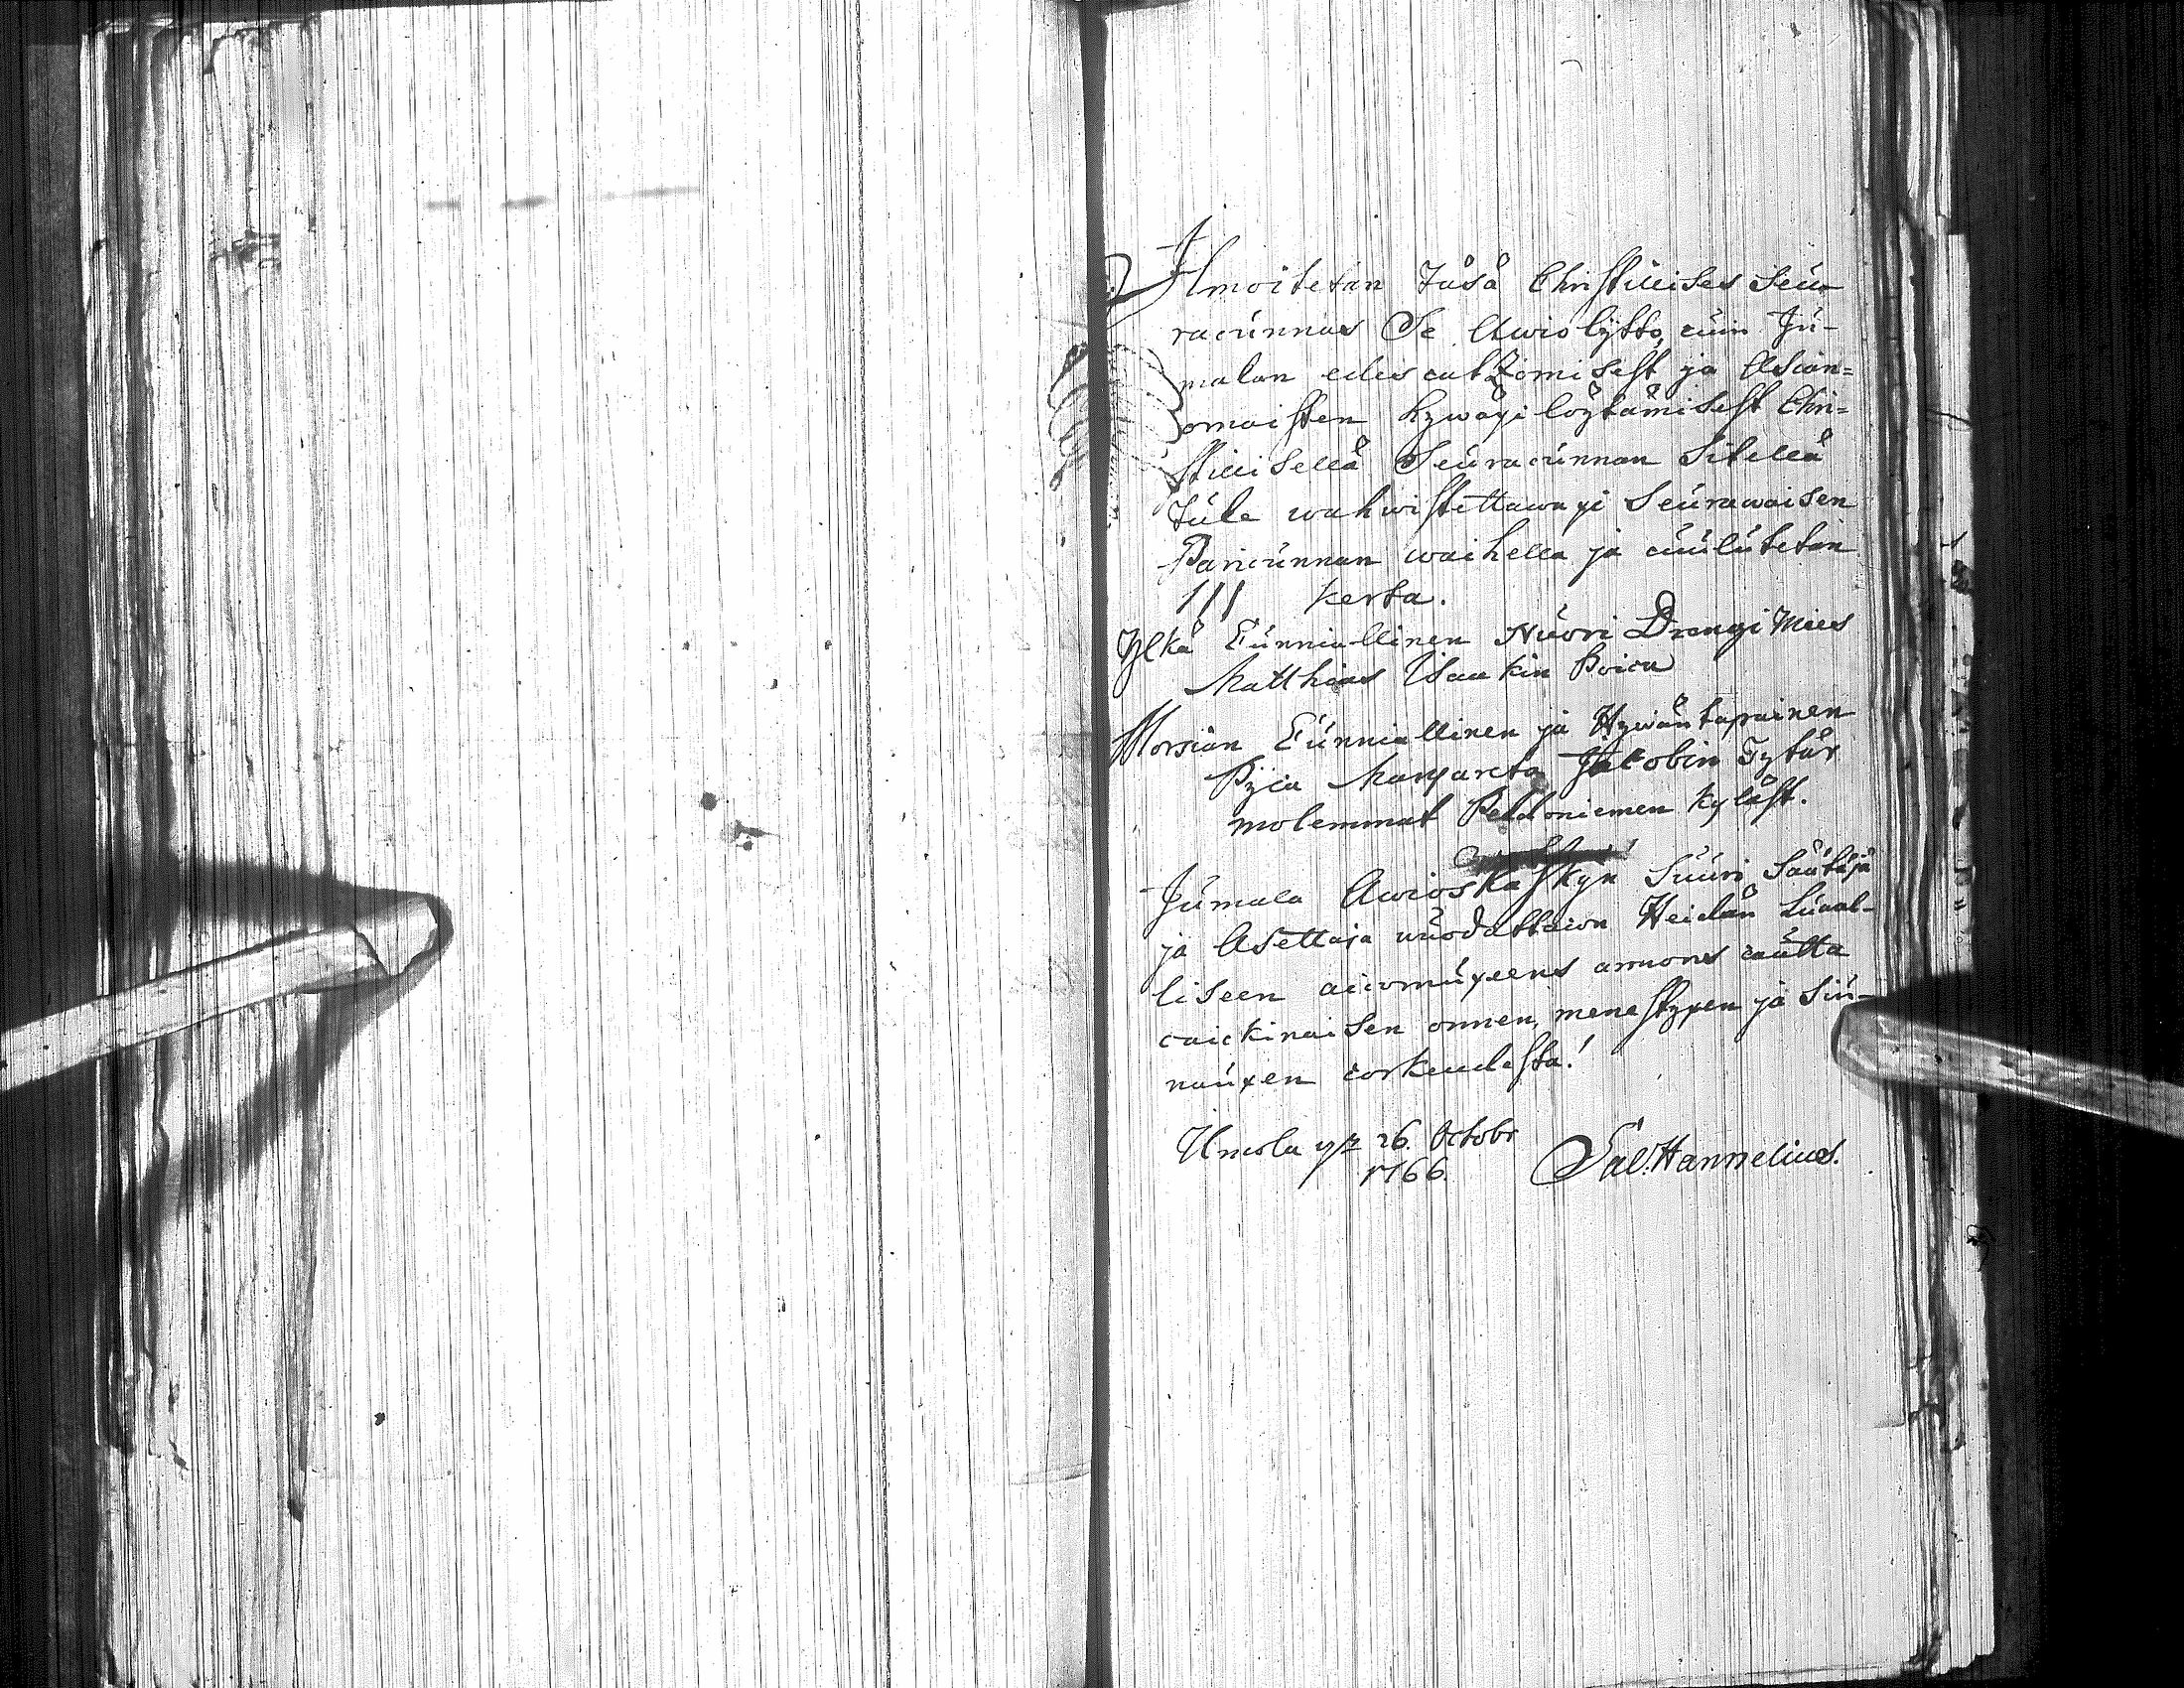 Ilmoitetan täsä Christilises Seu-
racunnas Se Awiolijtto, cuin Ju-
malan edescatzomisest ja Asian=
omaisten hywäxi löytämisest Chri-
stilisellä Seuracunnan Sitellä
tule wahwistettawaxi Seurawaisen
Paricunnan waihella ja cuulutetan
III kerta.
Ylkä Cunniallinen Nuori Drengi Mies
Matthias Isaakin Poica
Morsian Cunniallinen ja Hywäntapainen
Pijca Margareta Jacobin Tytär
molemmat Peldoniemen Kyläst.
Jumala Awioskäskyn Suuri Säätäjä
ja Asettaja wuodattacon Heidän Luwal-
liseen aicomuxeens armons cautta
caickinaisen onnen, menestyxen ja Siu-
nauxen corkeudesta!
Ulwila 26. Octobr
1766. Sal. Hannelius.